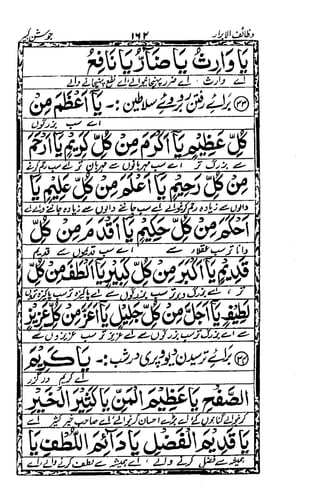 وظائف الابرار ۱۶۲ جوشن کبیر
يَا وَارِثُ يَا ضَآرُّ يَا نَافِعُ
اے وارث اے ضرر پہنچانے والے اے نفع پہنچانے والے
برائے رفتن روبروئے سلاطین :۔ يَا اَعْظَمَ مِنْ
اے سب بزرگوں
كُلِّ عَظِيْمٍ يَا اَكْرَمَ مِنْ كُلِّ كَرِيْمٍ يَا اَرْحَمَ
سے بزرگ تر اے سب مہربانوں سے مہربان تر اے سب رحم کرنے
مِنْ كُلِّ رَحِيْمٍ يَا اَعْلَمَ مِنْ كُلِّ عَلِيْمٍ يَا
والوں سے زیادہ رحم کرنیوالے اے سب جاننے والوں سے زیادہ جاننے والے اے
اَحْكَمَ مِنْ كُلِّ حَكِيْمٍ يَا اَقْدَمَ مِنْ كُلِّ
دانا تر سب عقلاء سے اے سب قدیموں سے قدیم
قَدِيْمٍ يَا اَكْبَرَ مِنْ كُلِّ كَبِيْرٍ يَا اَلْطَفَ مِنْ كُلِّ
تر، اے بزرگ تر سب بزرگوں سے اے پاکیزہ تر سب پاکیزہ
لَطِيْفٍ يَا اَجَلَّ مِنْ كُلِّ جَلِيْلٍ يَا اَعَزَّ مِنْ كُلِّ عَزِيْزٍ
اے بزرگ تر سب بزرگوں سے اے عزیز تر سب عزیزوں سے
برائے ترسیدن دیو و پری در شب :۔ يَا كَرِيْمَ
اے کریم در گزر
الصَّفْحِ يَا عَظِيْمَ الْمَنِّ يَا كَثِيْرَ الْخَيْرِ
کرنیوالے گناہوں کے اے بڑے احسان کرنیوالے اے صاحب خیر کثیر اے
يَا قَدِيْمَ الْفَضْلِ يَا دَآئِمَ اللُّطْفِ يَا
ہمیشہ سے فضل کرنے والے اے ہمیشہ سے لطف کرنے والے اے